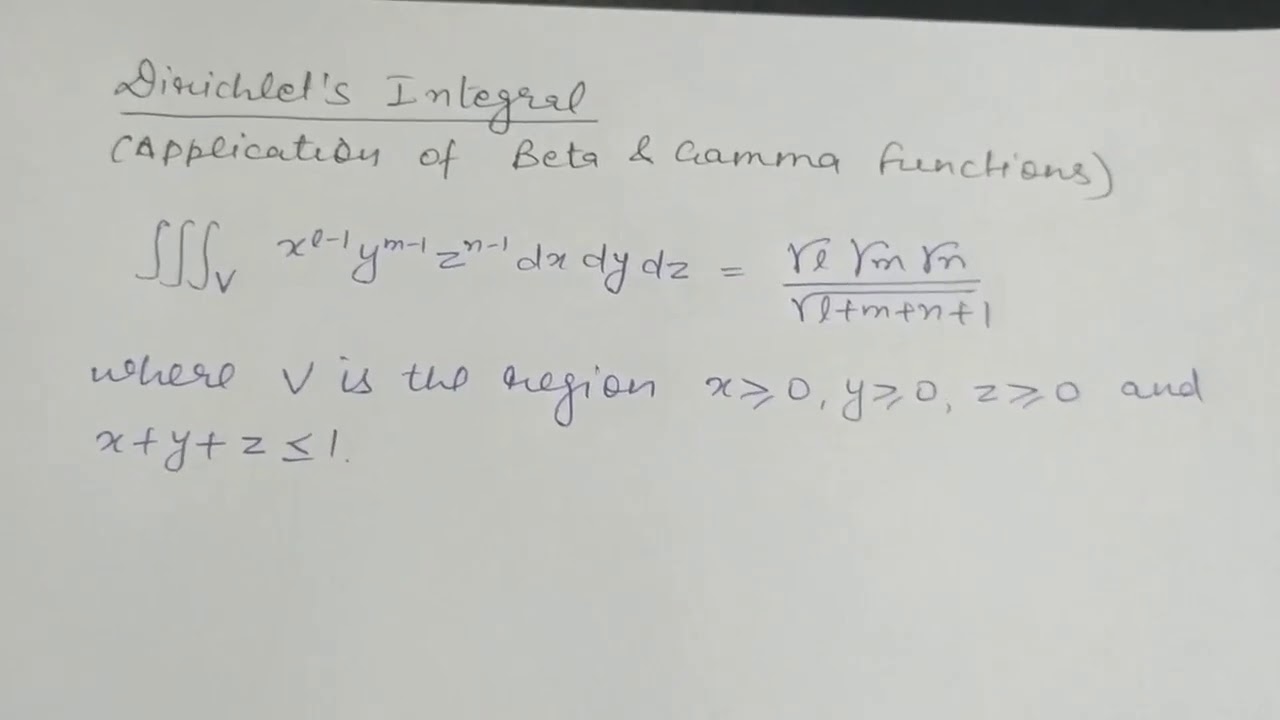 Dirichlet's Integral
(Application of Beta & Gamma functions)
∭_V x^{l-1} y^{m-1} z^{n-1} dx dy dz = (Γl Γm Γn) / (Γl+m+n+1)
where V is the region x ≥ 0, y ≥ 0, z ≥ 0 and
x + y + z ≤ 1.